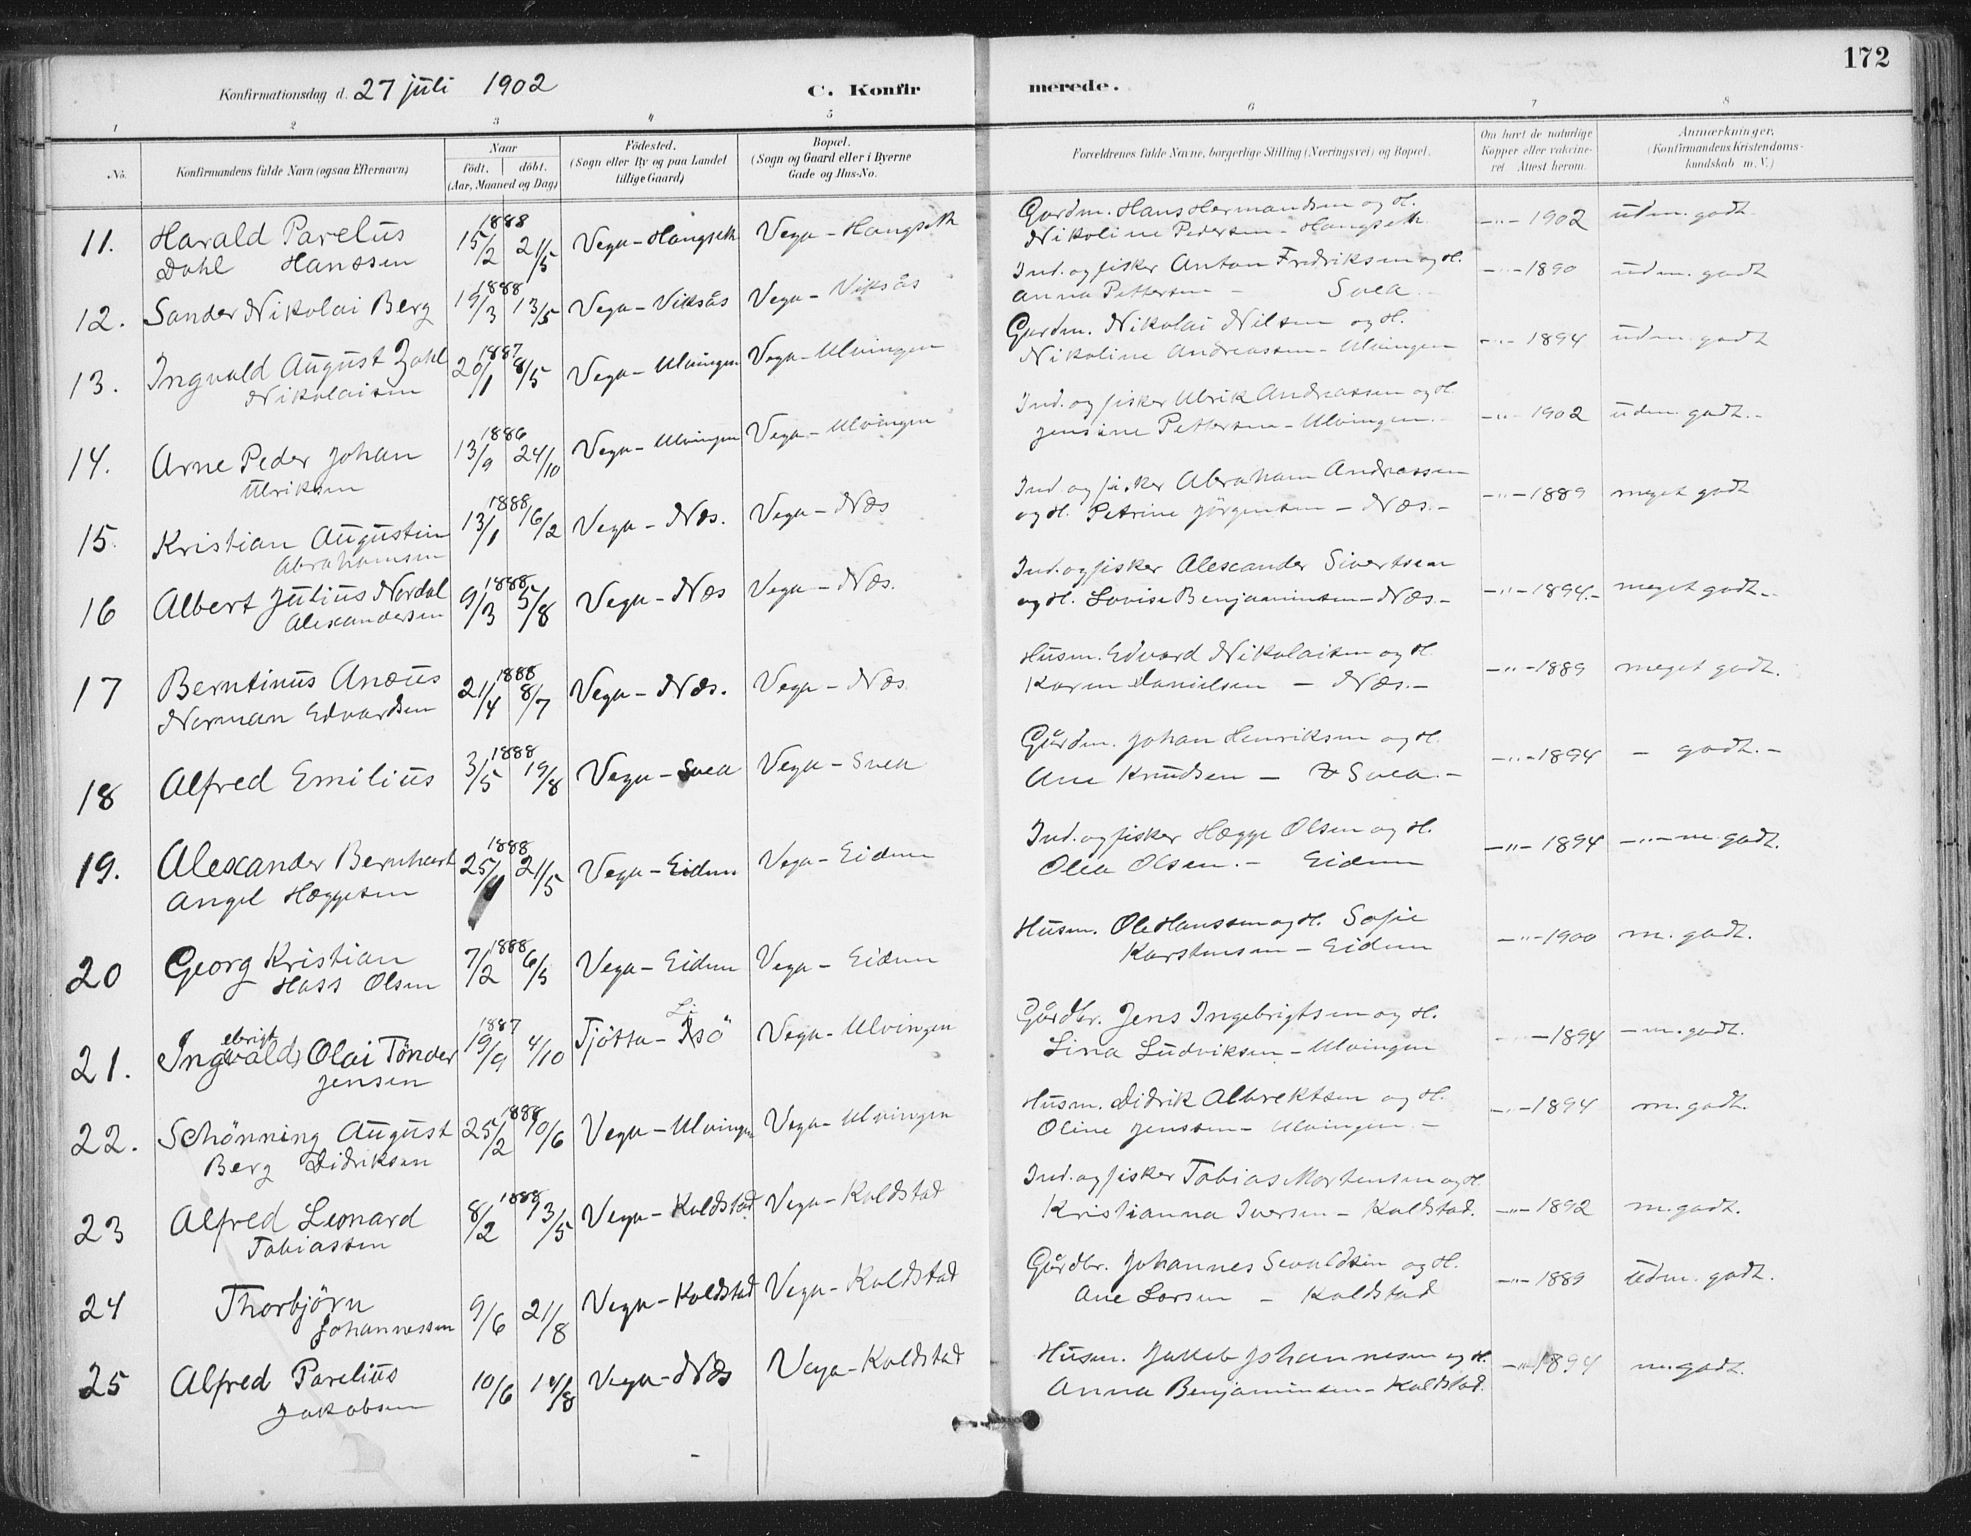 172
Konfirmationsdag d. 27 juli 1902
C. Konfirmerede.
1 2 3 4 5 6 7 8
No. Konfirmandens fulde Navn (ogsaa Efternavn) Naar født. døbt. (Aar, Maaned og Dag) Födested. (Sogn eller By og paa Landet tillige Gaard) Bopæl. (Sogn og Gaard eller i Byerne Gade og Hus-No. Forældrenes fulde Navne, borgerlige Stilling (Næringsvei) og Bopæl. Om havt de naturlige Kopper eller vakcineret Attest herom. Anmærkninger. (Konfirmandens Kristendomskundskab m. V.)
1888
11. Harald Parelius 15/2 21/5 Vega - Hangseth Vega - Hangseth Gardm. Hans Hermandsen og H. -"- 1902 udm. godt
Dahl Hanssen Nikoline Pedersen - Hangseth
1888
12. Sander Nikolai Berg 19/3 13/5 Vega - Viksås Vega - Viksås Ind. og fisker Anton Fredriksen og H. -"- 1890 udm. godt
Anna Pettersen - Svea.
1887
13. Ingvald August Zahl 20/1 8/5 Vega - Ulvingen Vega - Ulvingen Gardm. Nikolai Nilsen og H. -"- 1894 udm. godt
Nikolaisen Nikoline Andreassen - Ulvingen
1886
14. Arne Peder Johan 13/9 24/10 Vega - Ulvingen Vega - Ulvingen Ind. og fisker Ulrik Andreassen og H. -"- 1902 udm. godt.-
Ulriksen Jensine Pettersen - Ulvingen.-
1888
15. Kristian Augustin 13/1 16/2 Vega - Næs. Vega - Næs Ind. og fisker Abraham Andreassen -"- 1889 meget godt
Abrahamsen og H. Petrine Jörgensen - Næs.-
1888
16 Albert Julius Nordal 9/3 5/8 Vega - Næs Vega - Næs. Ind. og fisker Alexander Sivertsen -"- 1894.- meget godt.-
Alexandersen og H. Lovise Benjaminsen - Næs.-
1888
17 Berntinus Anæus 21/4 8/7 Vega - Næs. Vega - Næs Husm. Edvard Nikolaisen og H -"- 1889 meget godt.
Norman Edvardsen Karen Danielsen - Næs.-
1888
18 Alfred Emilius 3/5 19/8 Vega - Svea Vega - Svea Gårdm. Johan Henriksen og H. -"- 1894 - godt.-
Ane Knudsen - Svea.-
1888
19. Alexander Bernhart 25/ 21/5 Vega - Eidem Vega - Eidem Ind. og fisker Hægge Olsen og H. -"- 1894 -"- m. godt.
Angel Hæggesen Olea Olsen.- Eidem
1888
20 Georg Kristian 7/2 6/5 Vega - Eidem Vega - Eidem Husm. Ole Hanssen og H. Sofie -"- 1900 m. godt.
Hass Olsen Karstensen - Eidem
1887
21. Ingvald ebrigt Olai Tönder 19/9 4/10 Tjötta - Lisö Vega - Ulvingen Gårdbr. Jens Ingebrigtsen og H. -"- 1894 - m. godt.
Jensen Lina Ludviksen - Ulvingen
1888
22. Schönning August 25/2 10/6 Vega - Ulvingen Vega - Ulvingen Husm. Didrik Albrektsen og H. -"- 1894 m. godt.
Berg Didriksen Oline Jenssen - Ulvingen.-
1888
23 Alfred Leonard 8/2 13/5 Vega - Koldstad Vega - Koldstad Ind. og fisker Tobias Mortensen og H. -"- 1892 m. godt.
Tobiassen Kristianna Iversen - Koldstad.
24 Thorbjörn 9/6 21/8 Vega - Koldstad Vega - Koldstad Gårdbr. Johannes Sevaldsen og H. -"- 1889 udm. godt.
Johannessen Ane Larsen - Koldstad
25 Alfred Parelius 10/6 Vega - Næs Vega - Koldstad Husm. Jakob Johannesen og H. -"- 1894 m. godt.
Jakobsen Anna Benjaminsen - Koldstad.